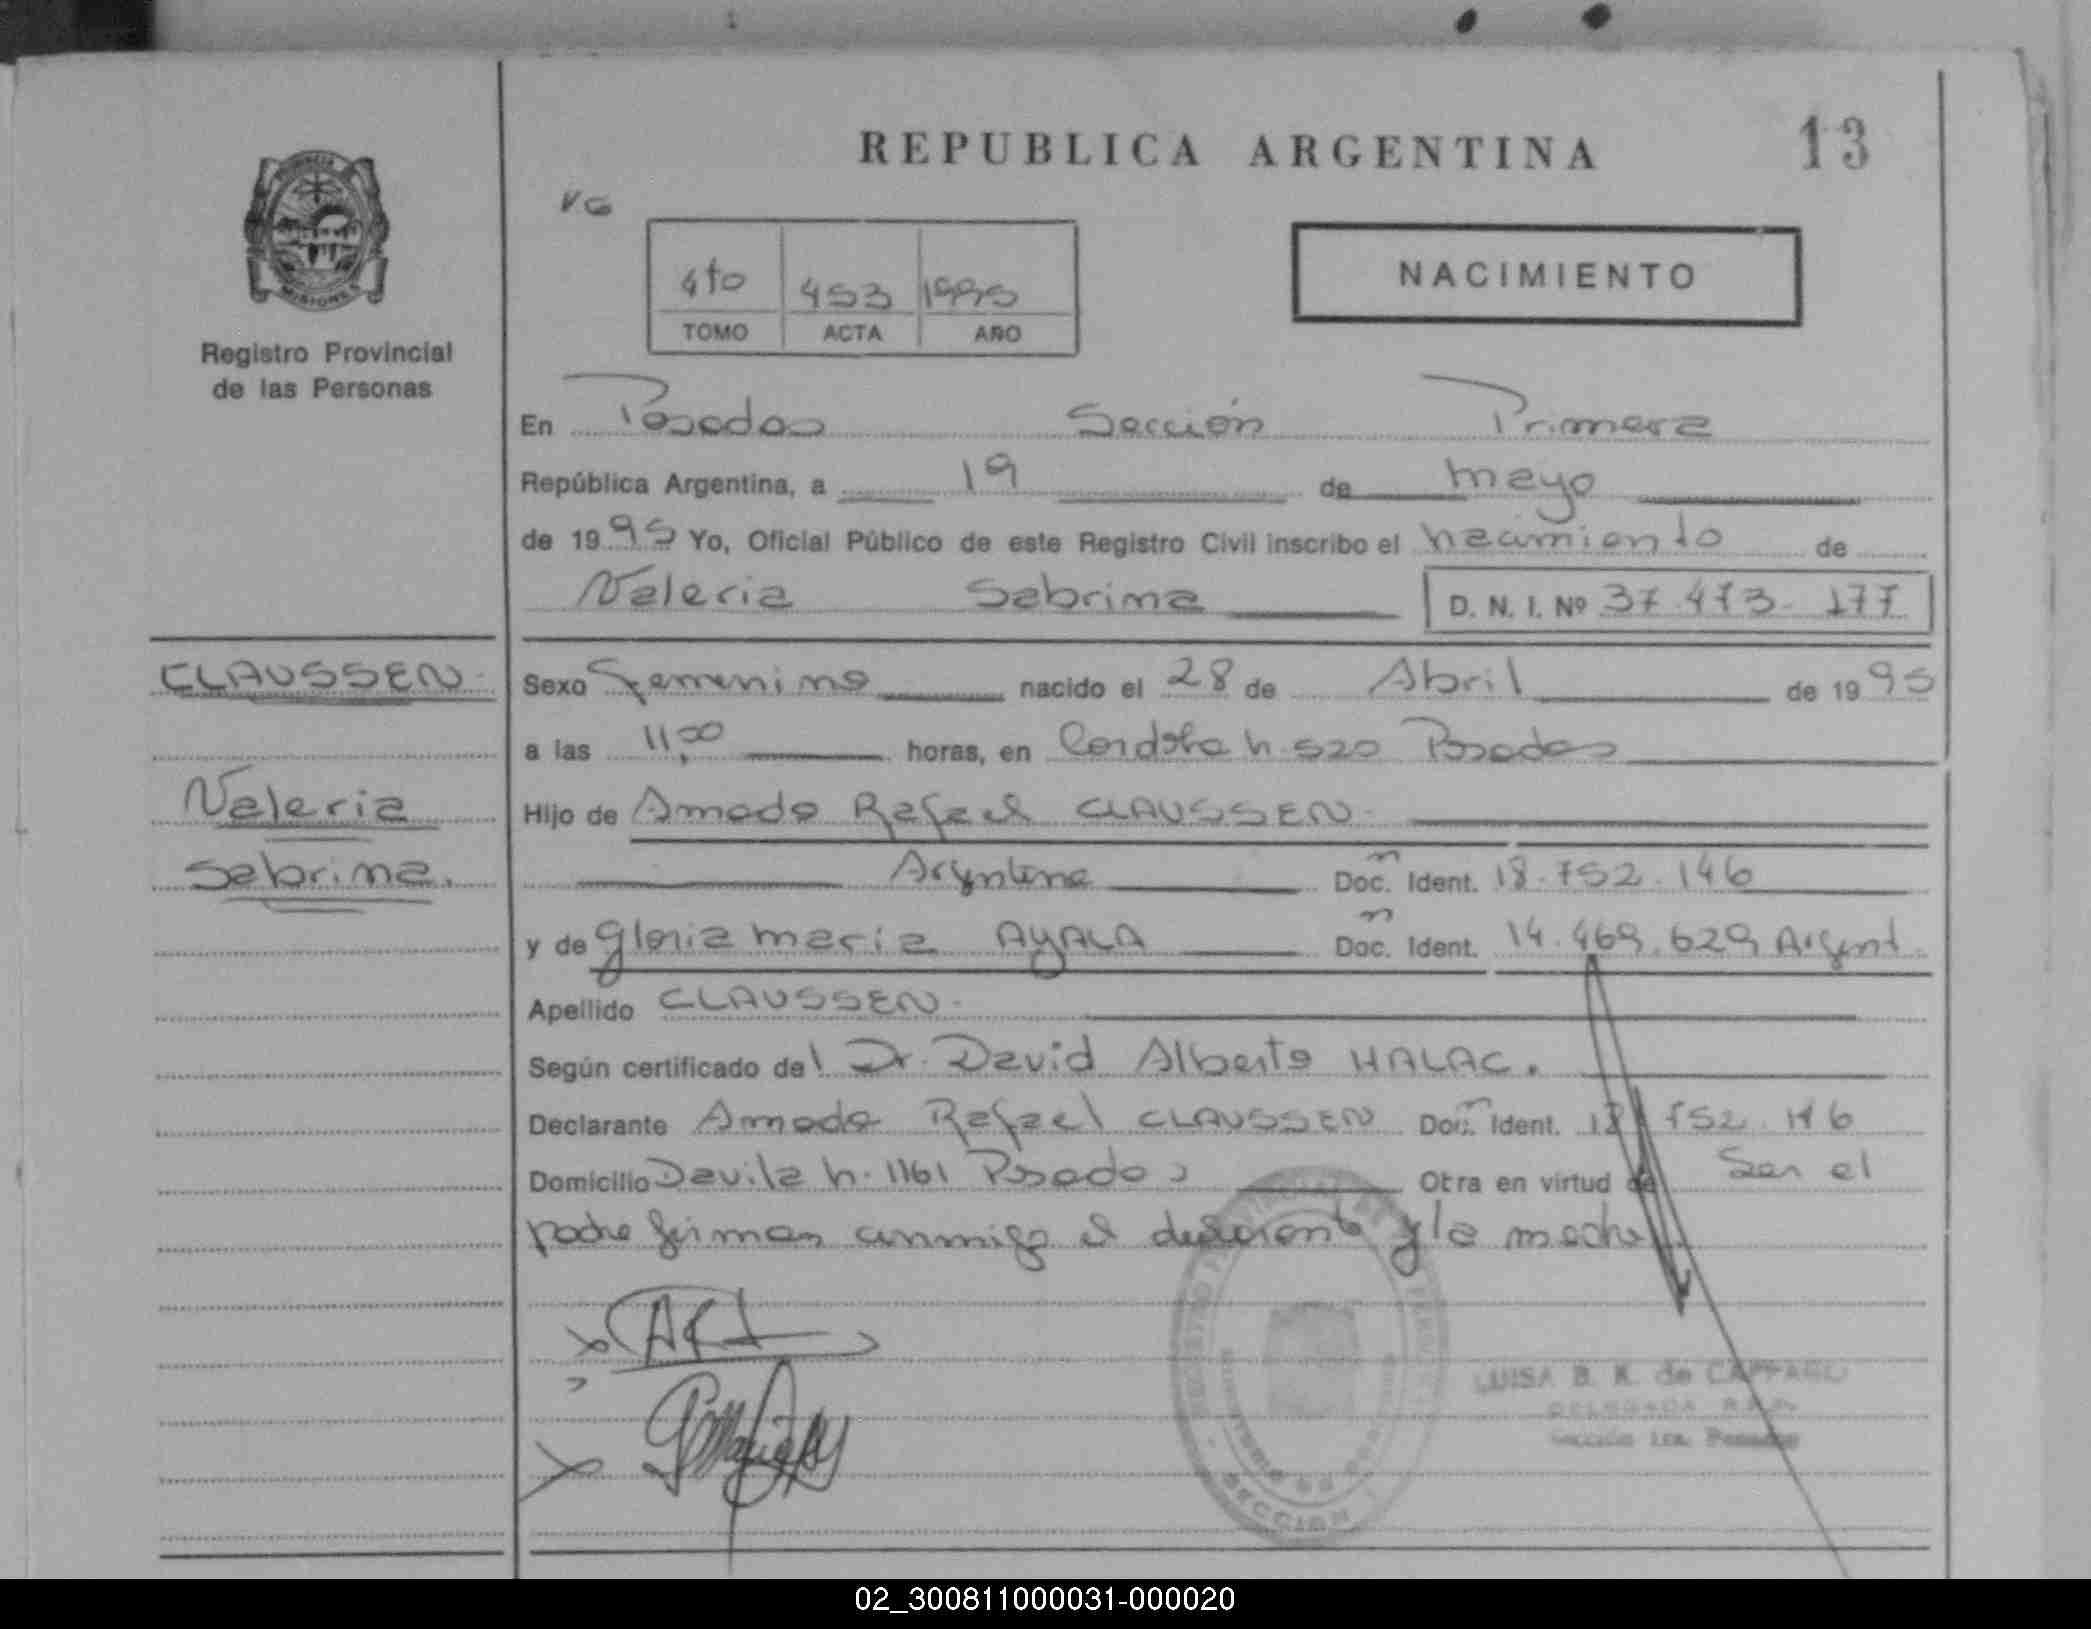 REPUBLICA ARGENTINA
13
VG
NACIMIENTO
4to 453 1995
TOMO ACTA AÑO
MISIONES
Registro Provincial
de las Personas
En Posadas Sección Primera
República Argentina, a 19 de mayo
de 1995 Yo, Oficial Público de este Registro Civil inscribo el nacimiento de
Valeria Sabrina D. N. I. Nº 37.473.177
CLAUSSEN
Valeria
Sabrina.
Sexo Femenino nacido el 28 de Abril de 1995
a las 11,00 horas, en Cordoba n. 520 Posadas
Hijo de Amado Rafael CLAUSSEN
Argentino Doc. Ident. 18.752.146
y de Gloria maria AYALA Doc. Ident. 14.469.629 Argent.
Apellido CLAUSSEN
Según certificado del Dr. David Alberto HALAC.
Declarante Amado Rafael CLAUSSEN Doc. Ident. 18.752.146
Domicilio Davila n. 1161 Posadas Otra en virtud de Ser el
padre firman conmigo el declarante y la madre
SECCION
LUISA B. K. de
DELEGADA R.P.P.
Sección 1ra. Posadas
02_300811000031-000020